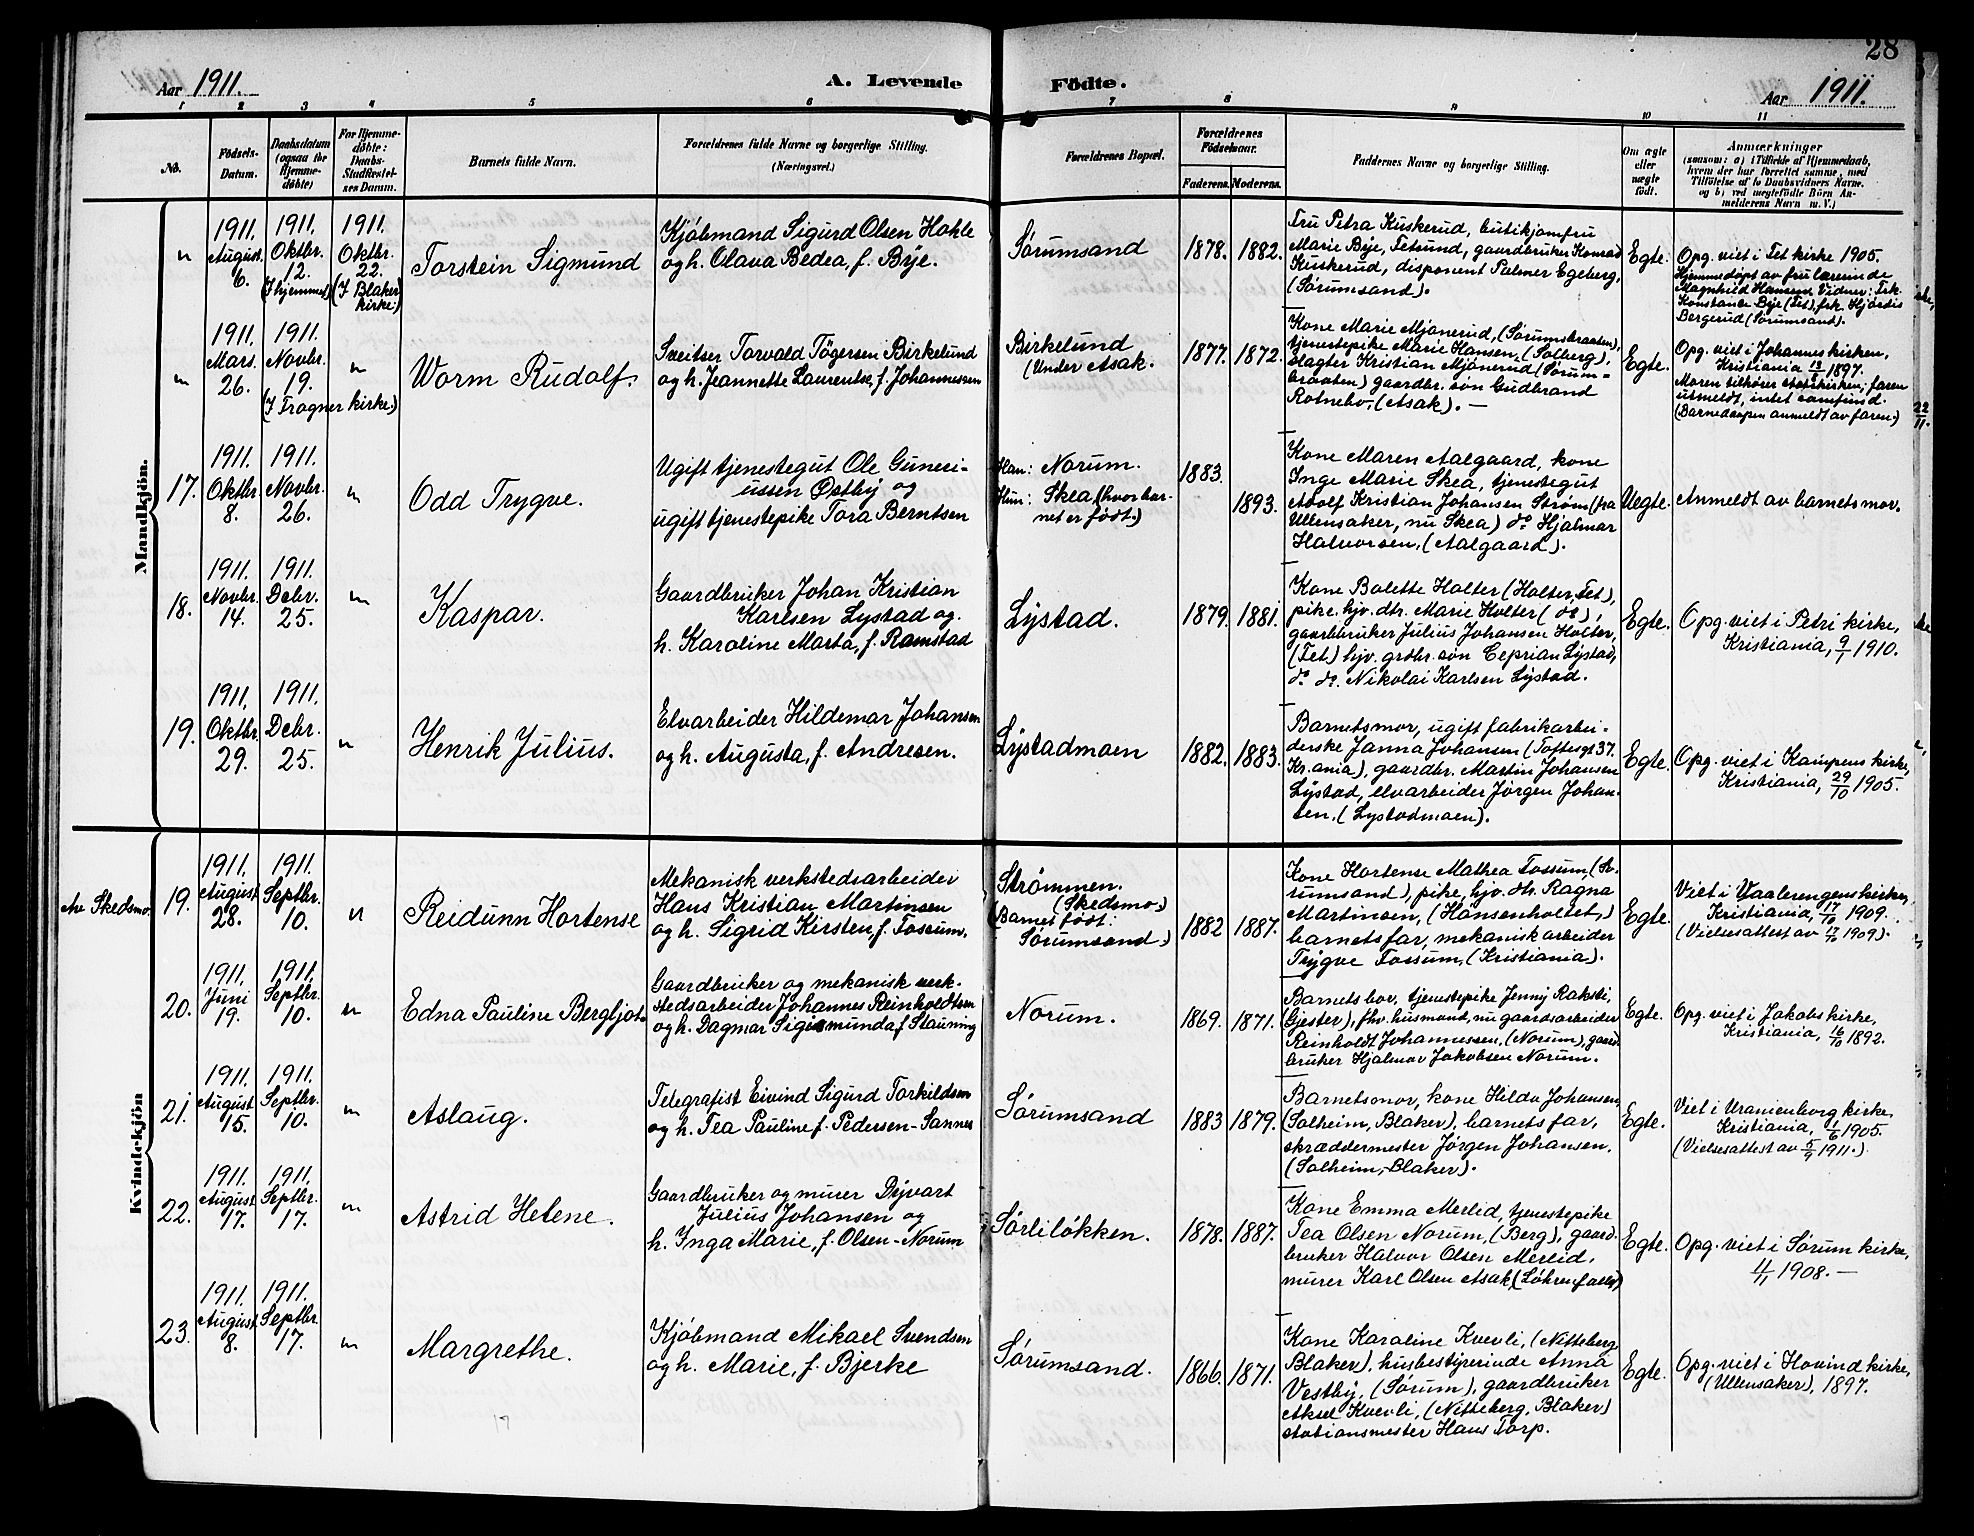 28
Aar 1911.
A. Levende
Födte.
Aar 1911.
1 2 3 4 5 6 7 8 9 10 11
No.
Födsels-
Datum.
Daabsdatum
(ogsaa for
Hjemme-
döbte)
For Hjemme-
döbte:
Daabs-
Stadfæstel-
ses Datum.
Barnets fulde Navn.
Forældrenes fulde Navne og borgerlige Stilling.
(Næringsvei.)
Forældrenes Bopæl.
Forældrenes
Födselsaar.
Faderens. Moderens.
Faddernes Navne og borgerlige Stilling.
Om ægte
eller
uægte
født.
Anmærkninger
(saasom: a) i Tilfælde af Hjemmedaab,
hvem der har forrettet samme, med
Tilföielse af to Daabsvidners Navne.
og b) ved uægtefödte Börn An-
melderens Navn m. V.)
Mandkjön.
"
1911.
August
6.
1911.
Oktbr.
12.
(I hjemmet)
1911.
Oktbr.
22.
(I Blaker
kirke:)
Torstein Sigmund
Kjöbmand Sigurd Olsen Hohle
og h. Olava Bedea, f. Bye.
Sørumsand
1878. 1882.
Fru Petra Kuskerud, butikjomfru
Marie Bye, Fetsund, gaardbruker Konrad
Kuskerud, disponent Palmer Egeberg,
(Sørumsand).
Egte.
Opg. viet i Fet kirke 1905.
Hjemmedøpt av fru lærerinde
Magnhild Hansen. Vidner: Frk.
Konstance Bye (Fet), frk. Hjørdis
Bergerud (Sørumsand).
"
1911.
Mars.
26.
1911.
Novbr.
19.
(I Frogner kirke.)
"
Worm Rudolf.
Sveitser Torvald Tögersen Birkelund
og h. Jeannette Laurentse, f. Johannessen
Birkelund
(Under Asak.
1877. 1872.
Kone Marie Mjønerud, (Sørumsbraaten),
tjenestepike Marie Hansen, (Solberg).
slagter Kristian Mjönerud (Sørum-
braaten) gaardbr. søn Gudbrand
Rotnebo, (Asak). —
Egte.
Opg. viet i Johanneskirken,
Kristiania 13/6 1897.
Moren tilhører statskirken; faren
utmeldt, intet samfund.
(Barnedaapen anmeldt av faren.)
17.
1911.
Oktbr.
8.
1911.
Novbr.
26.
"
Odd Trygve.
Ugift tjenestegut Ole Guneri-
ussen Østby og
ugift tjenestepike Tora Berntsen
Han: Norum.
Hun: Skea (hvor bar-
net er født.)
1883.
1893.
Kone Maren Aalgaard, kone
Inge Marie Skea, tjenestegut
Adolf Kristian Johansen Strøm (fra
Ullensaker, nu Skea) do Hjalmar
Halvorsen, (Aalgaard).
Uegte.
Anmeldt av barnets mor.
18.
1911.
Novbr.
14.
1911.
Debr.
25.
"
Kaspar.
Gaardbruker Johan Kristian
Karlsen Lystad og
h. Karoline Marta, f. Ramstad
Lystad.
1879. 1881.
Kone Bolette Holter (Holter, Fet),
pike. hjv. dtr. Marie Holter (do),
gaardbruker Julius Johansen Holter,
(Fet) hjv. grdbr. søn Ceprian Lystad,
do do. Nikolai Karlsen Lystad.
Egte.
Opg. viet i Petri kirke,
Kristiania, 9/1 1910.
19.
1911.
Oktbr.
29.
1911.
Debr.
25.
"
Henrik Julius.
Elvarbeider Hildemar Johansen
og h. Augusta, f. Andresen.
Lystadmoen
1882. 1883.
Barnetsmor, ugift fabrikarbei-
derske Janna Johansen (Toftesgt 37.
Kr.ania), gaardbr. Martin Johansen
Lystad, elvarbeider Jørgen Johan-
sen, (Lystadmoen).
Egte.
Opg. viet i Kampens kirke,
Kristiania, 29/10 1905.
Kvindekjön
Av Skedsmo.
19.
1911.
August
28.
1911.
Septbr.
10.
"
Reidunn Hortense
Mekanisk verkstedsarbeider
Hans Kristian Martinsen
og h. Sigrid Kirsten, f. Fossum.
Strømmen.
(Skedsmo.)
(Barnet født:
Sørumsand.)
1882 1887.
Kone Hortense Mathea Fossum, (Sø-
rumsand), pike, hjv. dtr. Ragna
Martinsen, (Hansenholtet,)
barnets far, mekanisk arbeider
Trygve Fossum, (Kristiania).
Egte.
Viet i Vaalerengens kirke,
Kristiania, 17/10 1909.
(Vielsesattest av 17/10 1909).
20.
1911.
Juni
19.
1911.
Septbr.
10.
"
Edna Pauline Bergljot.
Gaardbruker og mekanisk verk-
stedsarbeider Johannes Reinholdtsen
og h. Dagmar Sigismunda f Stauning
Norum.
1869. 1871.
Barnets bor, tjenestepike Jenny Raksti,
(Gjester), fhv. husmand, nu gaardsarbeider
Reinholdt Johannessen, (Norum), gaard-
bruker Hjalmar Jakobsen Norum.
Egte.
Opg. viet i Jakobs kirke,
Kristiania, 16/10 1892.
21.
1911.
August
15.
1911.
Septbr.
10.
"
Aslaug.
Telegrafist Eivind Sigurd Torkildsen
og h. Tea Pauline f. Pedersen-Sannes
Sørumsand
1883 1879.
Barnetsmor, kone Hilda Johansen,
(Solheim, Blaker), barnets far,
skræddermester Jørgen Johansen.
(Solheim, Blaker).
Egte.
Viet i Uranienborg kirke,
Kristiania, 1/6 1905.
(Vielsesattest av 5/9 1911.)
22.
1911.
August
17.
1911.
Septbr.
17.
"
Astrid Helene.
Gaardbruker og murer Dyvart
Julius Johansen og
h. Inga Marie, f. Olsen-Norum
Sørliløkken.
1878. 1887.
Kone Emma Merlid, tjenestepike
Tea Olsen Norum, (Berg), gaard-
bruker Halvor Olsen Merlid,
murer Karl Olsen Asak,
Egte.
Opg. viet i Sørum kirke,
4/1 1908. —
23.
1911.
August.
8.
1911.
Septbr.
17.
"
Margrethe.
Kjöbmand Mikael Svendsen
og h. Marie, f. Bjerke
Sørumsand.
1866. 1871.
Kone Karaline Kvevli, (Nitteberg
Blaker), husbestyrerinde Anna
Vestby, (Sørum), gaardbruker
Aksel Kvevli, (Nitteberg, Blaker)
stationsmester Hans Torp.
Egte.
Opg. viet i Hovind kirke,
(Ullensaker), 1897.